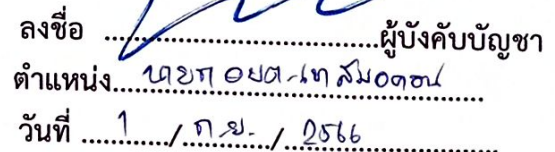 ลงชื่อ ........................................ผู้บังคับบัญชา
ตำแหน่ง....นายก อบต.....................
วันที่ ......1....../..ก.ย.../...2566..................